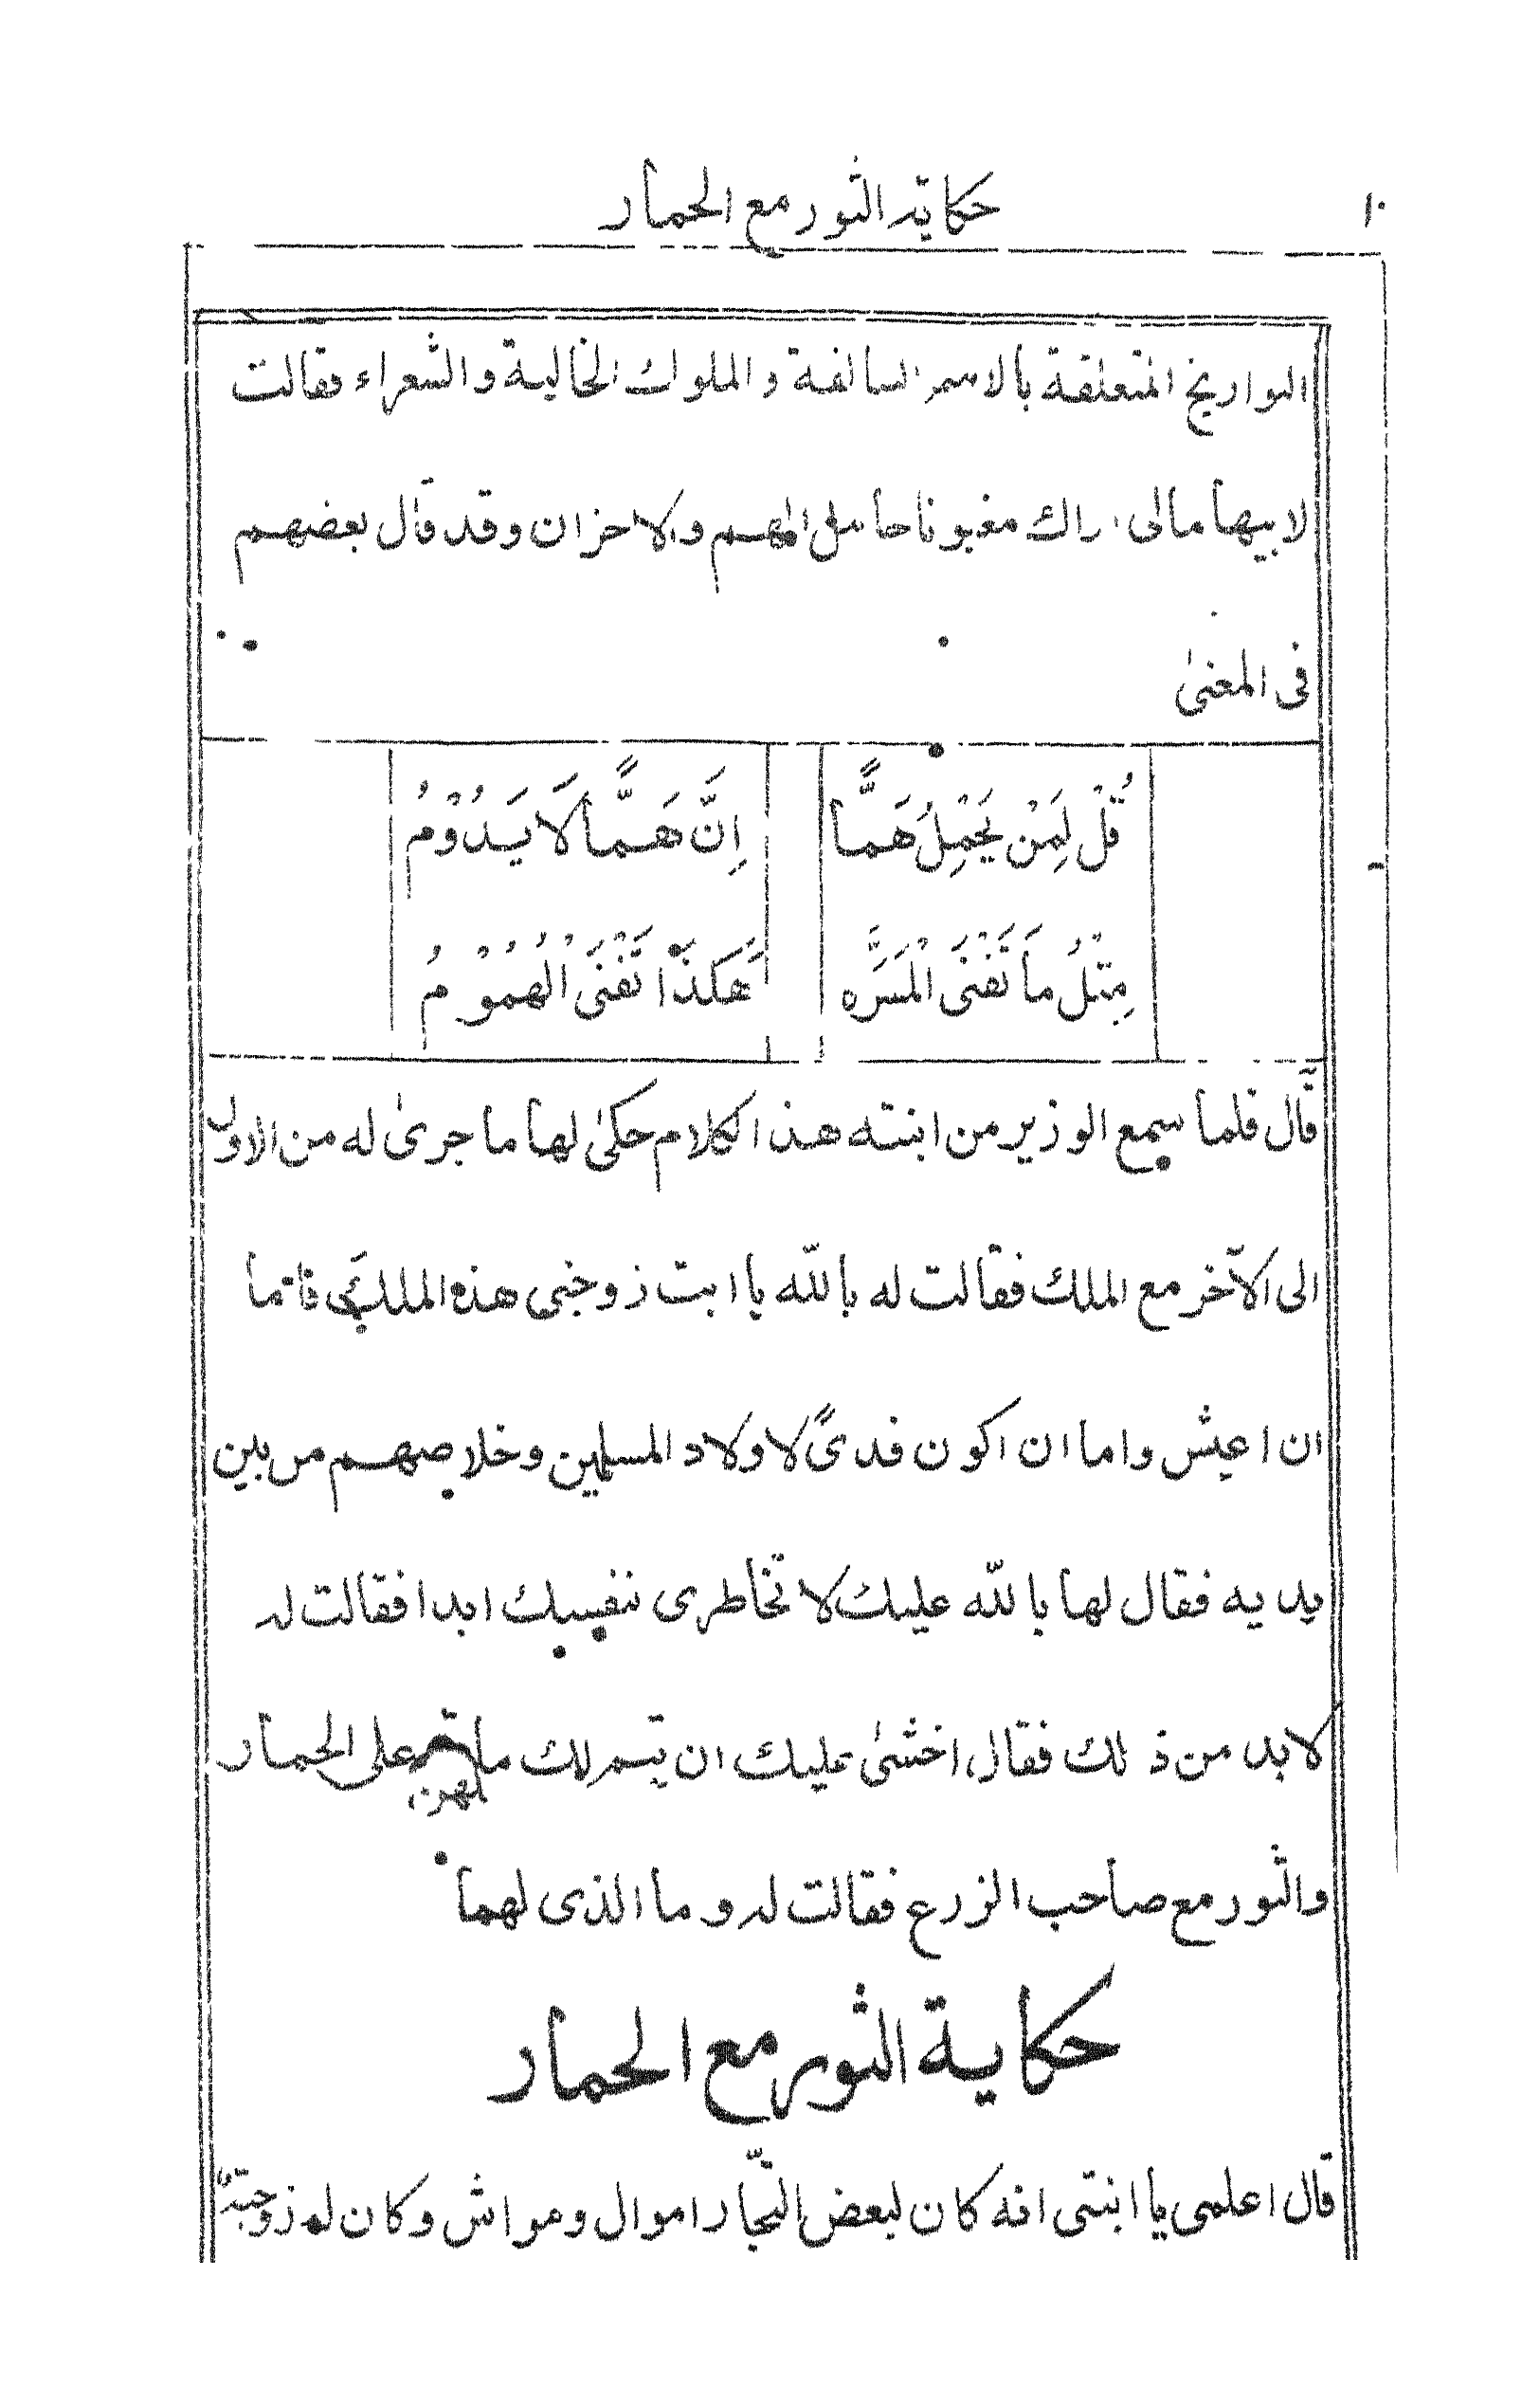 ١٠ حكاية الثور مع الحمار
التواريخ المتعلقة بالامم السالفة والملوك الخالية والشعراء فقالت
لابيها مالى اراك مغبونا حامل الهم والاحزان وقد قال بعضهم
فى المعنىٰ
قُلْ لِمَنْ يَحْمِلُ هَمًّا اِنَّ هَمًّا لَا يَدُوْمُ
مِثْلُ مَا تَفْنَى الْمَسَرَّه هَكَذَا تَفْنَى الْهُمُوْمُ
قال فلما سمع الوزير من ابنته هذا الكلام حكىٰ لها ما جرىٰ له من الاول
الى الآخر مع الملك فقالت له بالله يا ابت زوجنى هذه الملك فاما
ان اعيش واما ان اكون فدىً لاولاد المسلمين وخلاصهم من بين
يديه فقال لها بالله عليك لا تخاطرى بنفسك ابدا فقالت له
لابد من ذلك فقال اخشىٰ عليك ان يتم لك ما على الحمار
والثور مع صاحب الزرع فقالت له وما الذى لهما
حكاية الثور مع الحمار
قال اعلمى يا ابنتى انه كان لبعض التجّار اموال ومواش وكان له زوجة